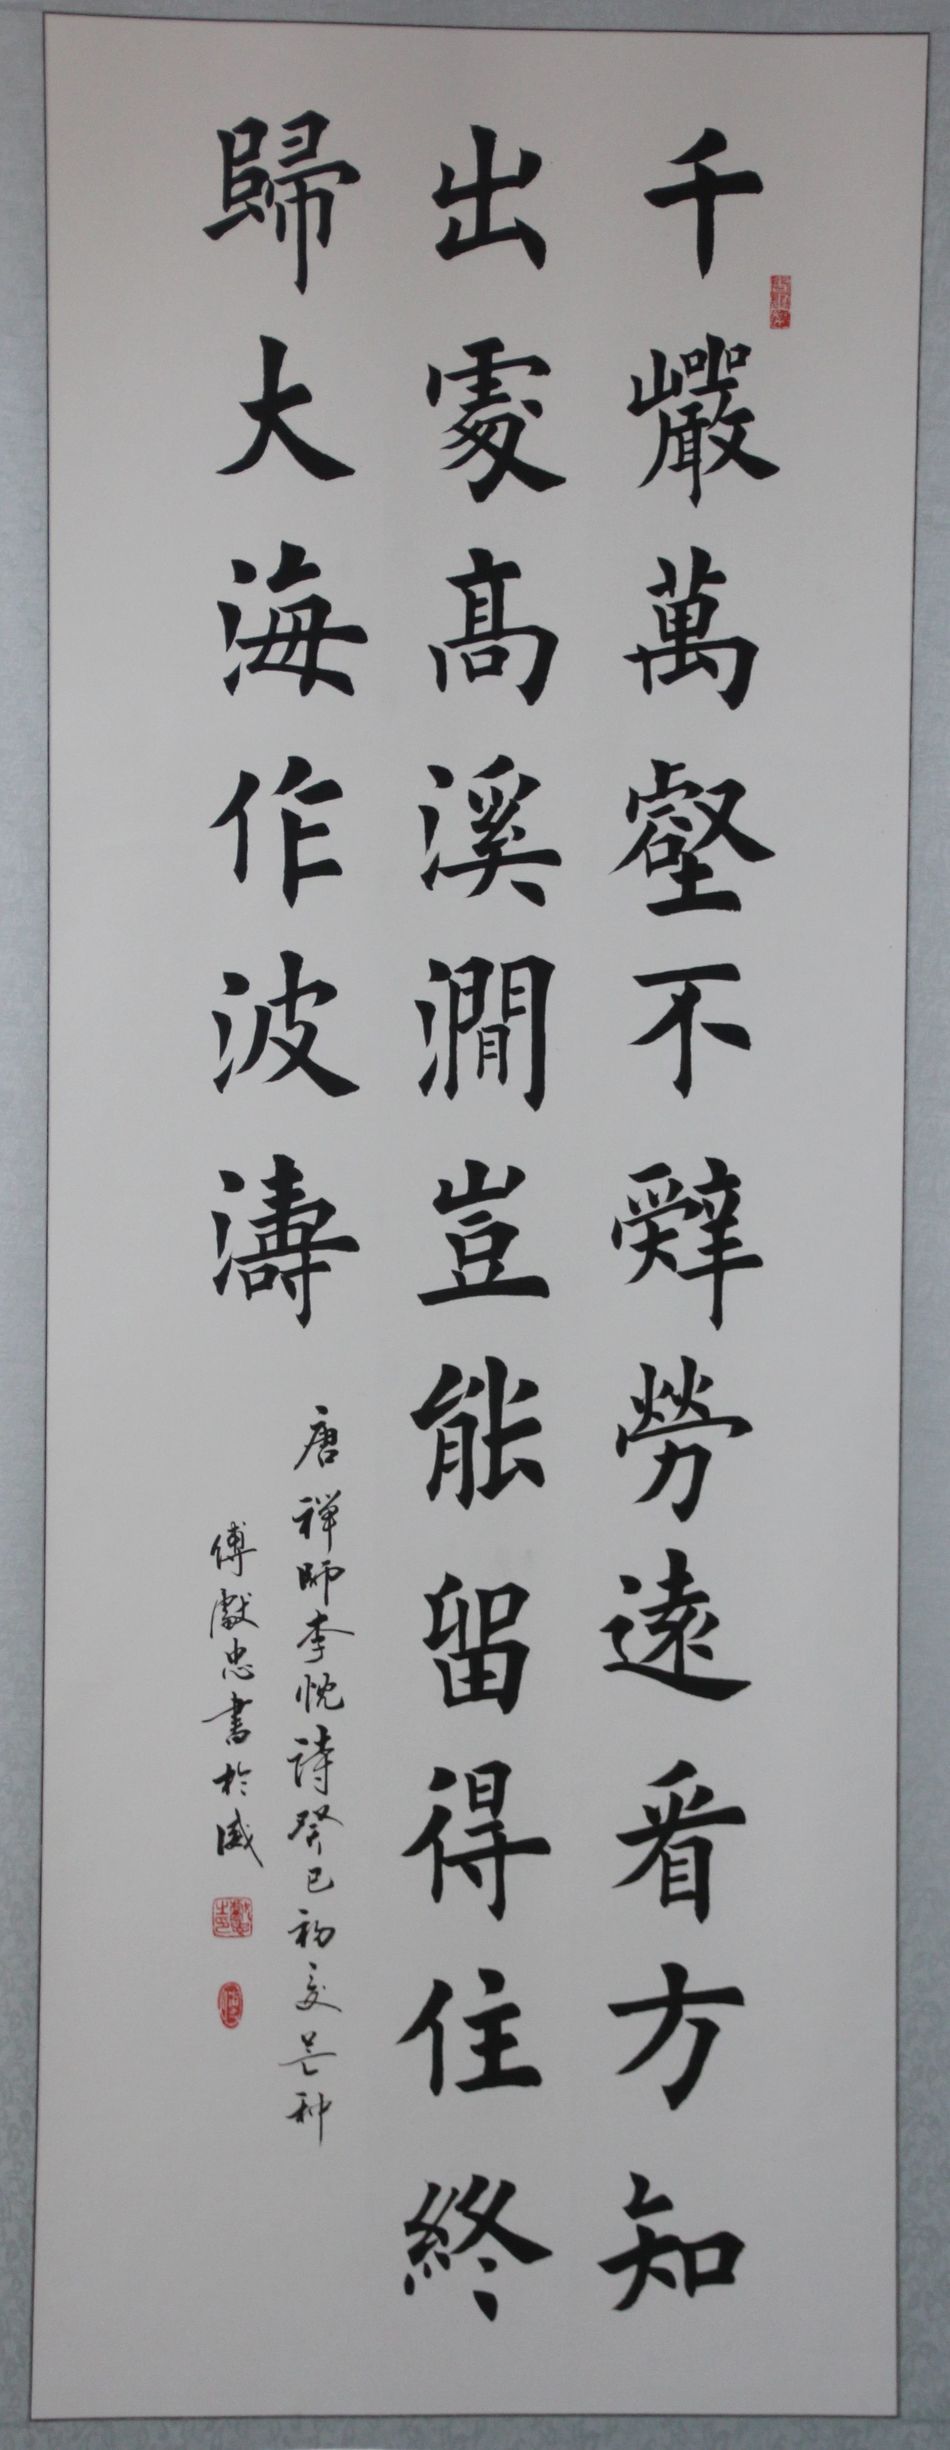 千巖萬壑不辭勞遠看方知
出處高溪澗豈能留得住終
歸大海作波濤
唐禅師李忱詩癸巳初夏芒种
傅獻忠書於威